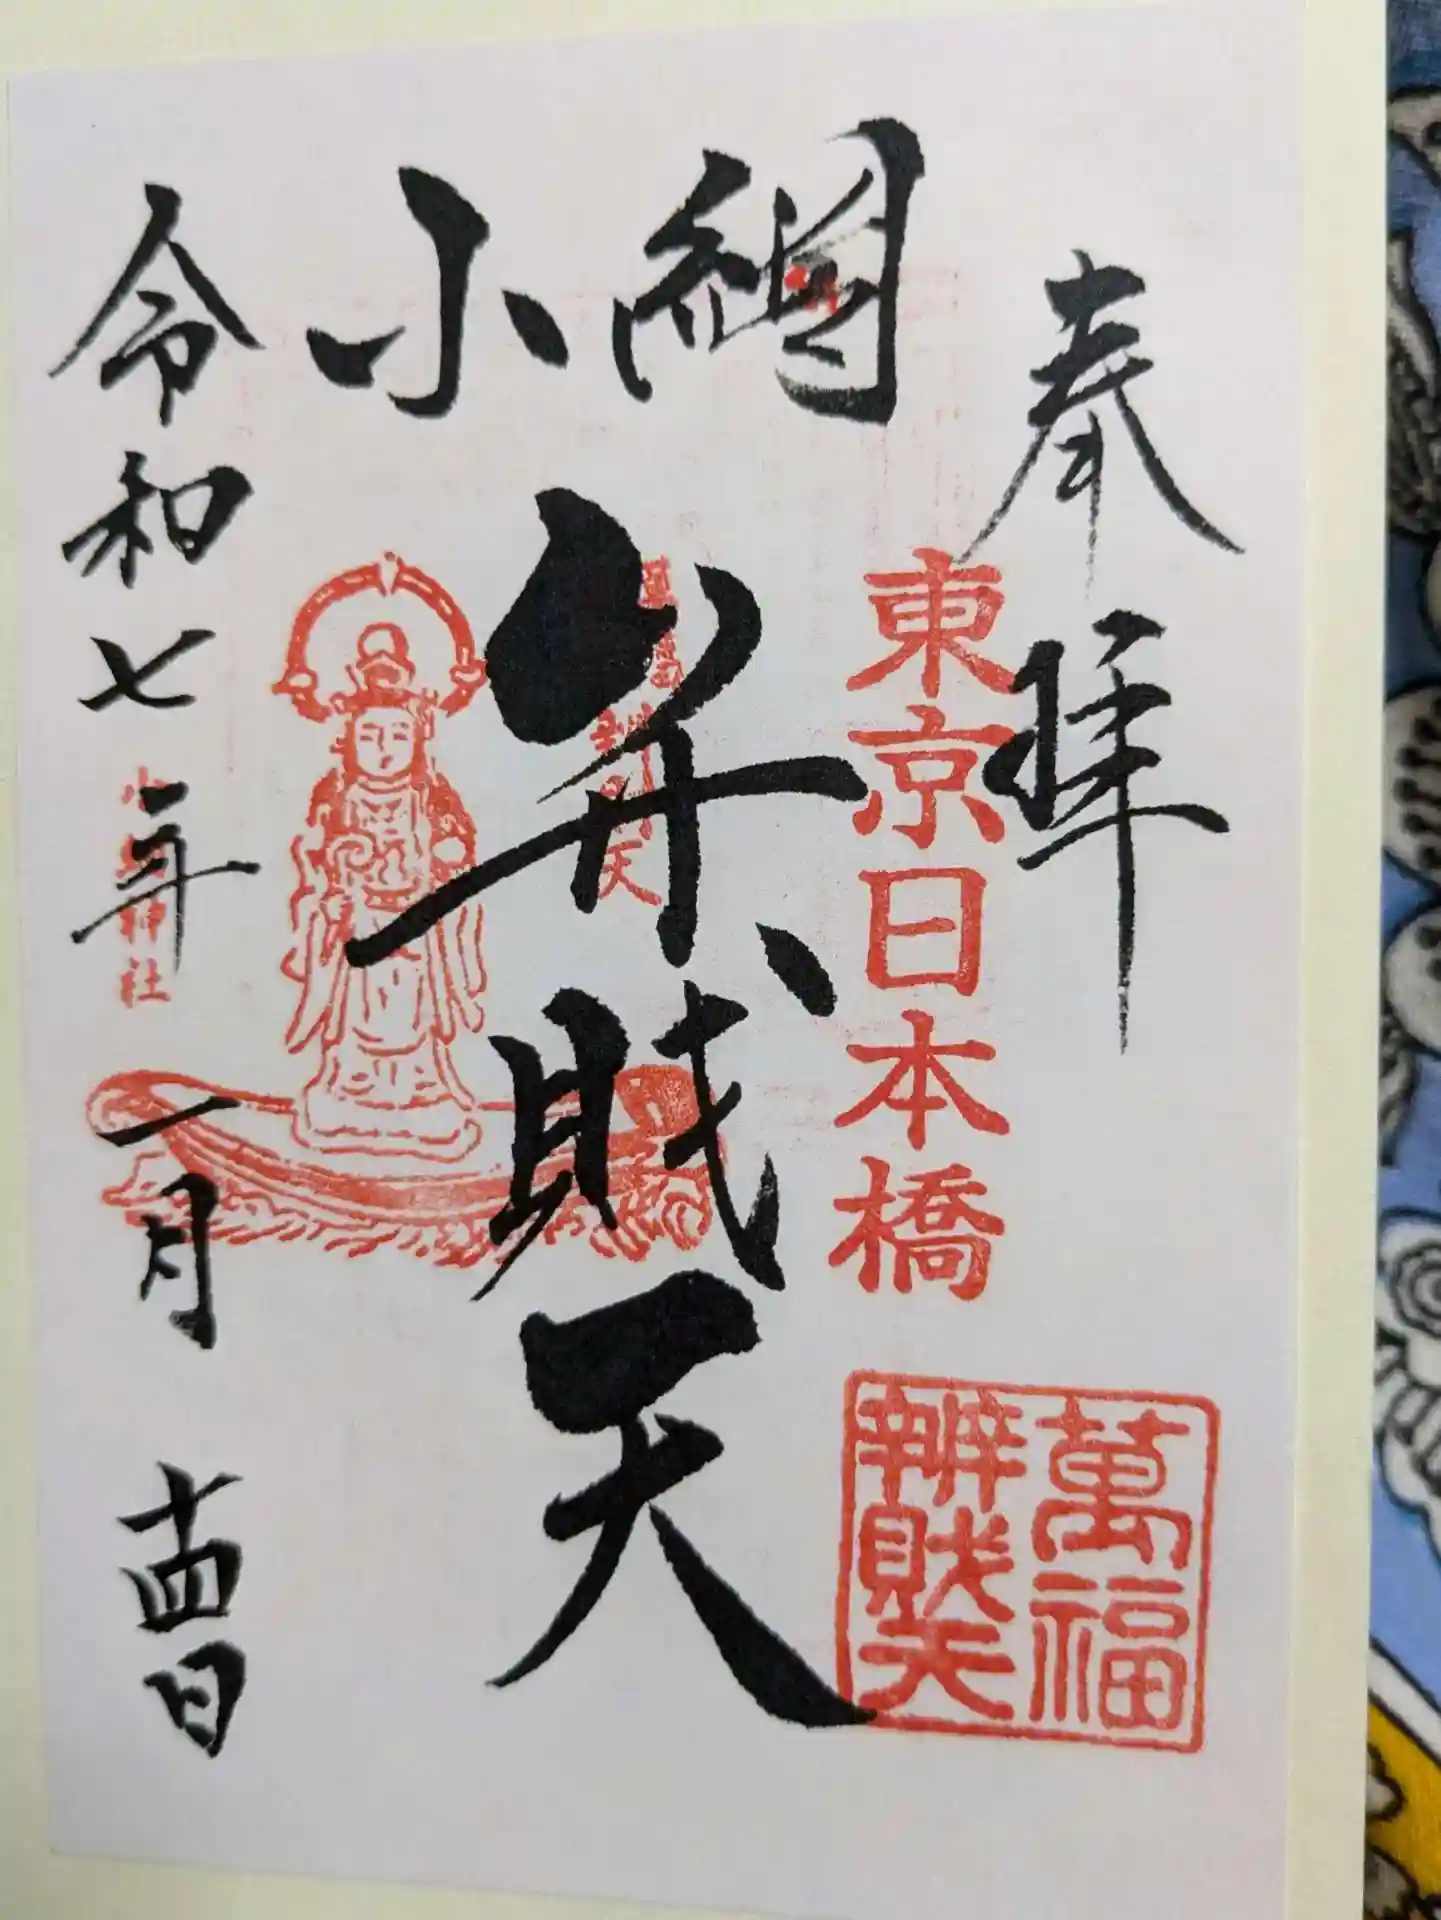 奉拝
東京日本橋
萬福
辨財天
小網
弁財天
令和七年一月十四日
小網神社